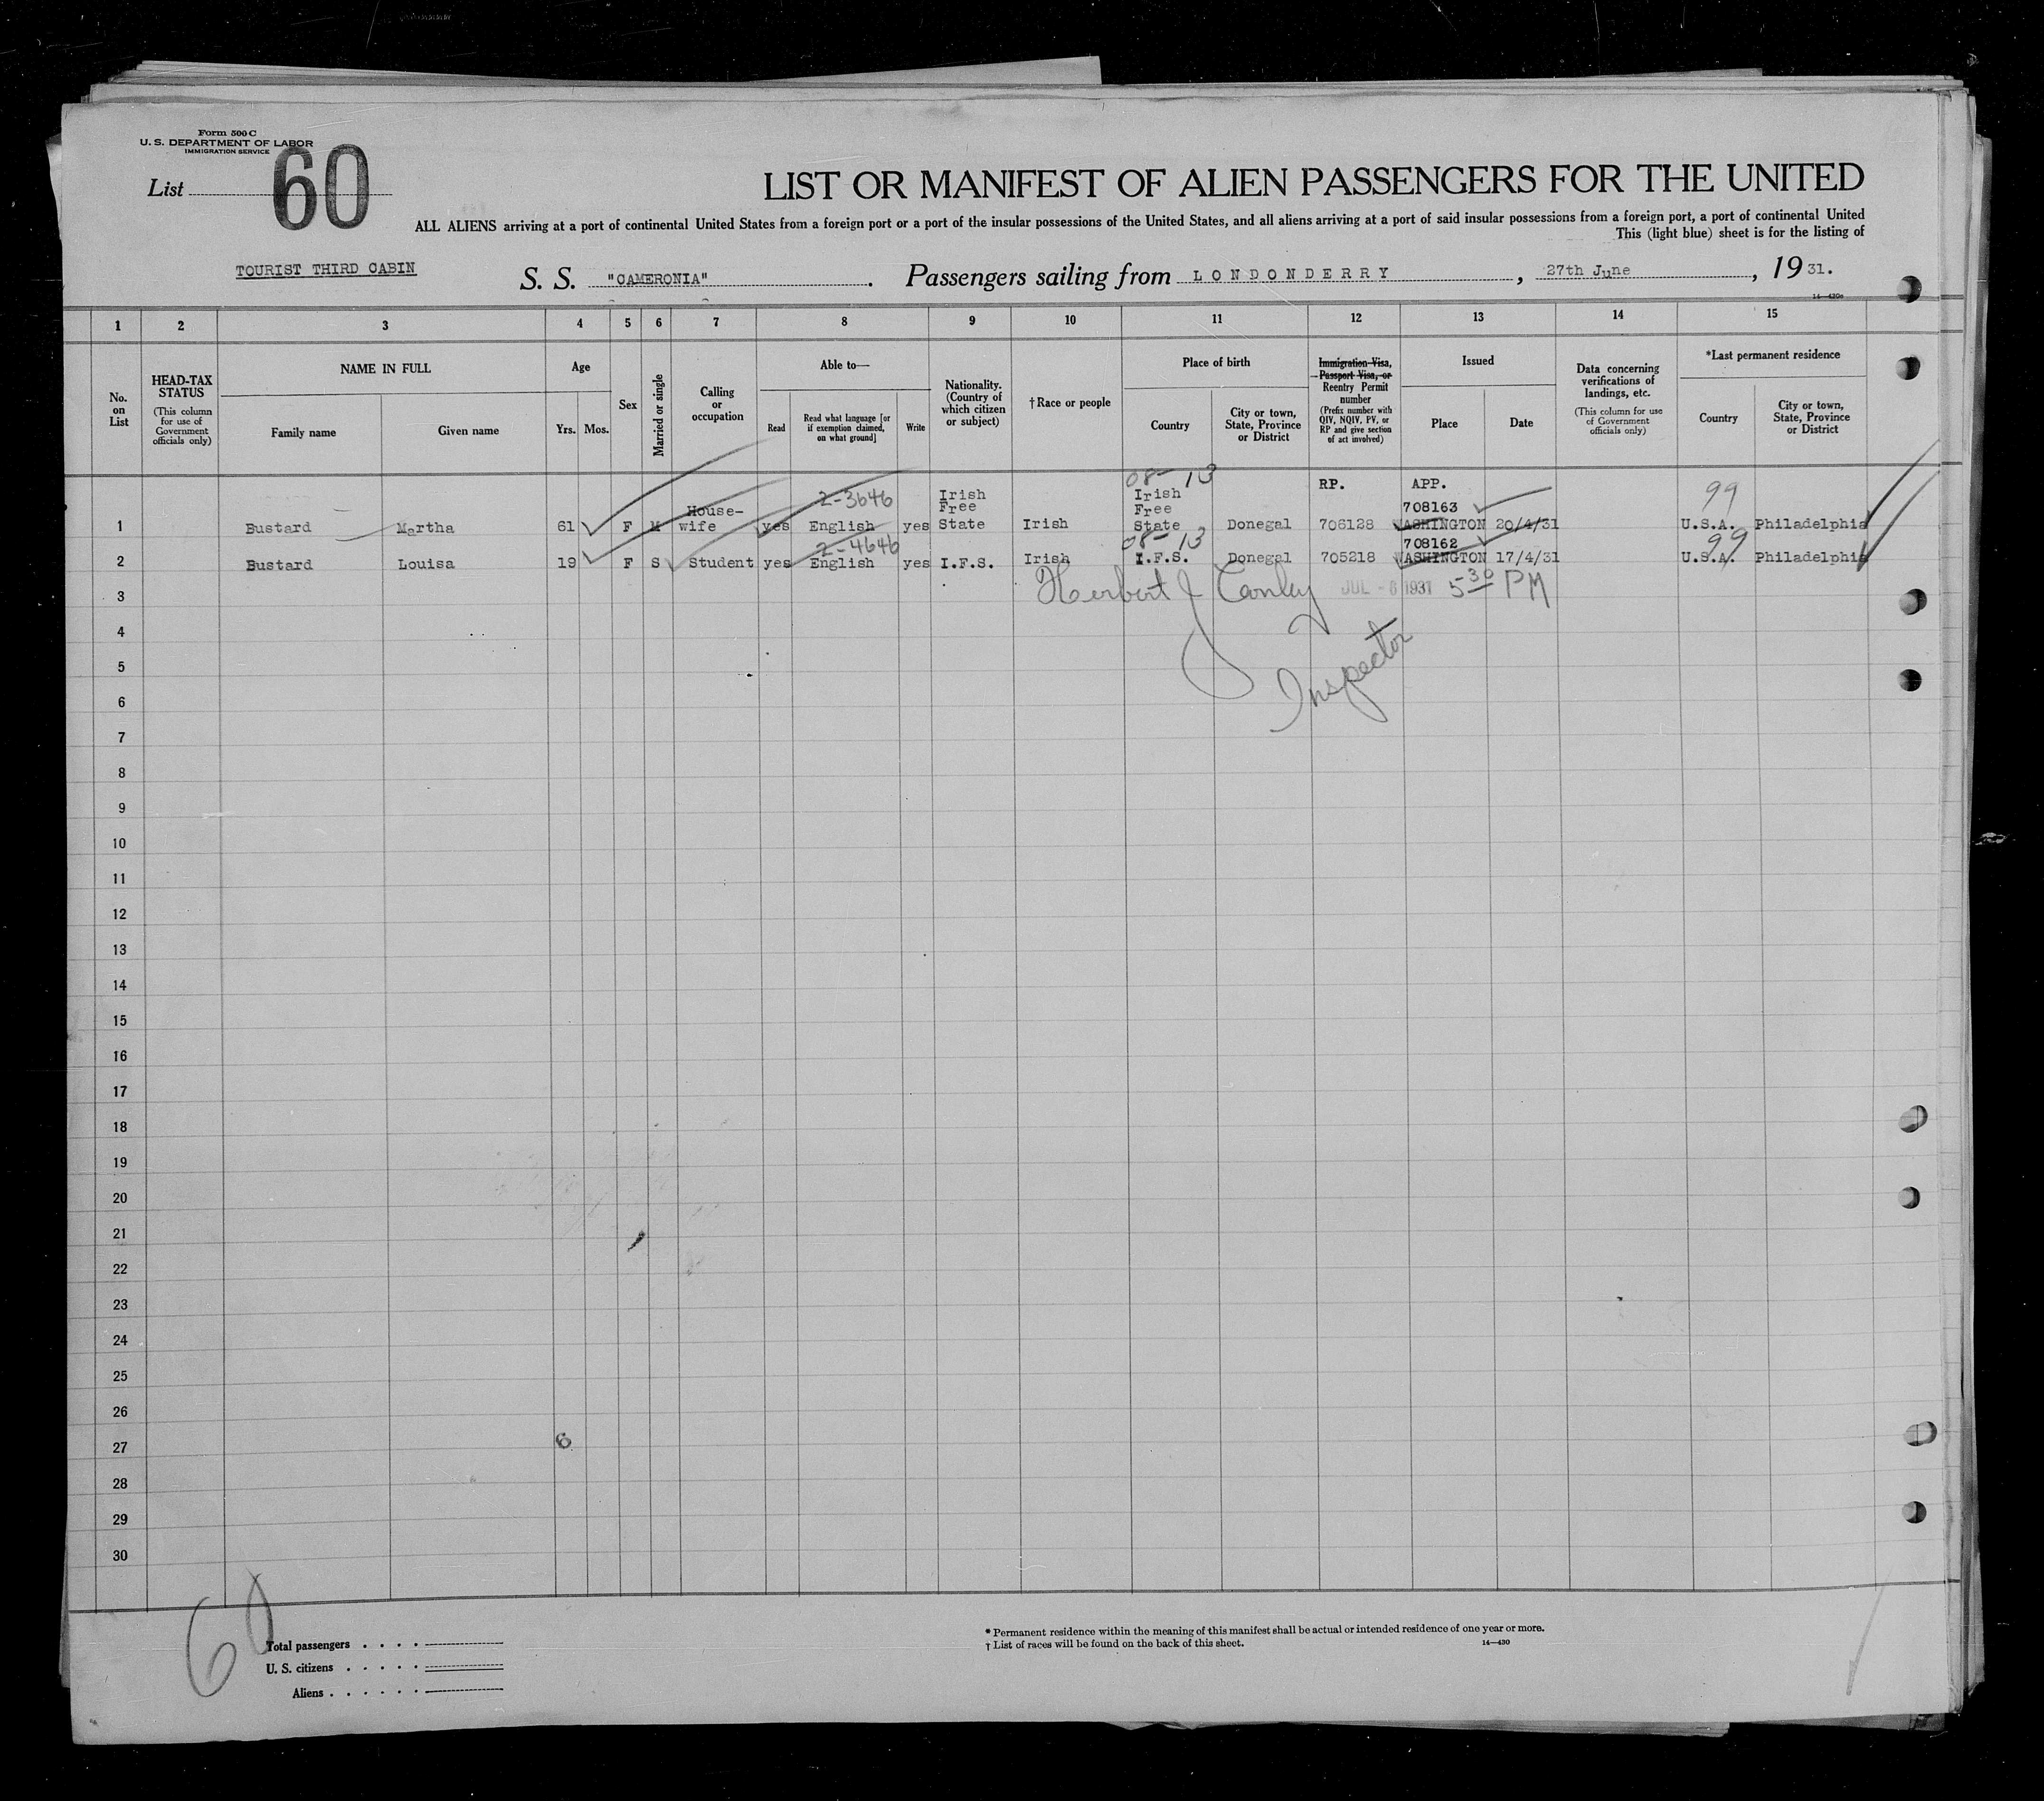 Form 500 C
U. S. DEPARTMENT OF LABOR
IMMIGRATION SERVICE
List 60
LIST OR MANIFEST OF ALIEN PASSENGERS FOR THE UNITED
ALL ALIENS arriving at a port of continental United States from a foreign port or a port of the insular possessions of the United States, and all aliens arriving at a port of said insular possessions from a foreign port, a port of continental United
This (light blue) sheet is for the listing of
TOURIST THIRD CABIN
S. S. "CAMERONIA". Passengers sailing from LONDONDERRY, 27th June, 1931.
14—430a
1 2 3 4 5 6 7 8 9 10 11 12 13 14 15
No. on List
HEAD-TAX STATUS
(This column for use of Government officials only)
NAME IN FULL
Family name
Given name
Age
Yrs. Mos.
Sex
Married or single
Calling or occupation
Able to—
Read
Read what language [or if exemption claimed, on what ground]
Write
Nationality. (Country of which citizen or subject)
†Race or people
Place of birth
Country
City or town, State, Province or District
Immigration Visa, Passport Visa, or Reentry Permit number
(Prefix number with QIV, NQIV, PV, or RP and give section of act involved)
Issued
Place
Date
Data concerning verifications of landings, etc.
(This column for use of Government officials only)
*Last permanent residence
Country
City or town, State, Province or District
08-13
RP. APP.
2-3646 708163 99
1 Bustard Martha 61 F M House-wife yes English yes Irish Free State Irish Irish Free State Donegal 706128 WASHINGTON 20/4/31 U.S.A. Philadelphia
2-4646 08-13 708162 99
2 Bustard Louisa 19 F S Student yes English yes I.F.S. Irish I.F.S. Donegal 705218 WASHINGTON 17/4/31 U.S.A. Philadelphia
3 Herbert J Conley JUL -6 1931 5 30 PM
4
5
Inspector
6
7
8
9
10
11
12
13
14
15
16
17
18
19
20
21
22
23
24
25
26
27 6
28
29
30
60
Total passengers . . . .
U. S. citizens . . . . .
Aliens . . . . . .
* Permanent residence within the meaning of this manifest shall be actual or intended residence of one year or more.
† List of races will be found on the back of this sheet. 14—430